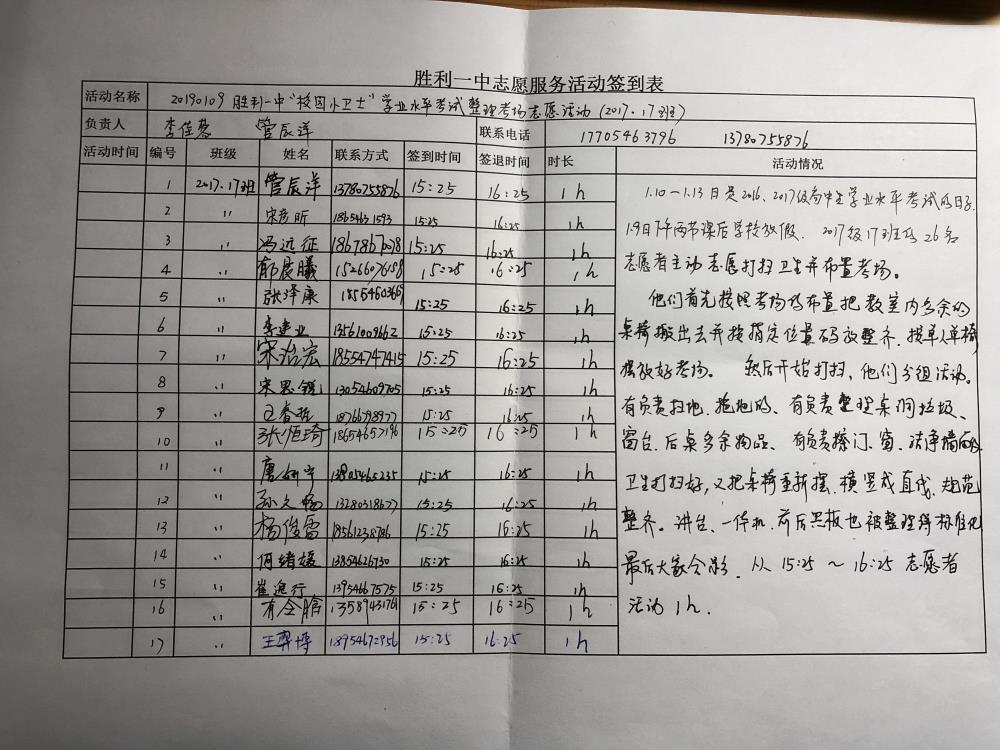 胜利一中志愿服务活动签到表
活动名称 20190109 胜利一中"校园小卫士"学业水平考试整理考场志愿活动(2017.17班)
负责人 李佳蓉 管辰洋 联系电话 17705463796 13780755876
活动时间 编号 班级 姓名 联系方式 签到时间 签退时间 时长 活动情况
1 2017.17班 管辰洋 13780755876 15:25 16:25 1h
2 〃 宋彦昕 18654631593 15:25 16:25 1h
3 〃 冯远征 18678670018 15:25 16:25 1h
4 〃 郁晨曦 15266076158 15:25 16:25 1h
5 〃 张泽康 15:25 16:25 1h
6 〃 李建业 13561009662 15:25 16:25 1h
7 〃 宋治宏 18554747415 15:25 16:25 1h
8 〃 宋思镜 13054609705 15:25 16:25 1h
9 〃 15:25 16:25 1h
10 〃 张恒琦 18654657196 15:25 16:25 1h
11 〃 唐妍宇 13905465235 15:25 16:25 1h
12 〃 孙久畅 13280318677 15:25 16:25 1h
13 〃 杨俊雷 18561238786 15:25 16:25 1h
14 〃 何绪媛 13854626730 15:25 16:25 1h
15 〃 崔逸行 13954667575 15:25 16:25 1h
16 〃 13589431761 15:25 16:25 1h
17 〃 王霁博 18954672956 15:25 16:25 1h
1.10-1.13日是2016、2017级高中生学业水平考试的日子.
1.9日下午两节课后学校放假. 2017级17班与26名
志愿者主动志愿打扫卫生并布置考场。
他们首先按照考场的布置把教室内多余的
桌椅搬出去并按指定位置码放整齐,按单人单椅
摆放好考场。然后开始打扫,他们分组活动。
有负责扫地、拖地的、有负责整理桌洞垃圾、
窗台、后桌多余物品、有负责擦门、窗、洁净墙面的.
卫生打扫好,又把桌椅重新摆,横竖成直线,规范
整齐。讲台、一体机、前后黑板也被整理得标准化
最后大家合影. 从15:25~16:25志愿者
活动1h.